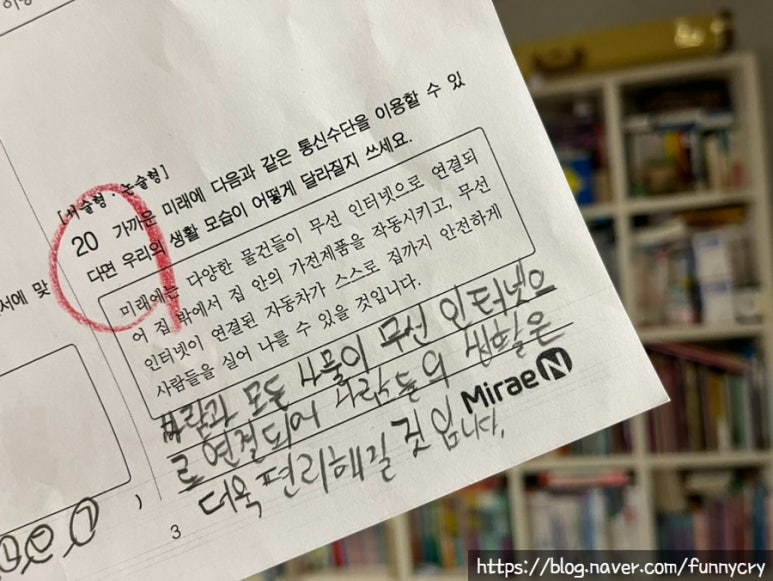 [서술형·논술형]
20 가까운 미래에 다음과 같은 통신수단을 이용할 수 있
다면 우리의 생활 모습이 어떻게 달라질지 쓰세요.
미래에는 다양한 물건들이 무선 인터넷으로 연결되
어 집 밖에서 집 안의 가전제품을 작동시키고, 무선
인터넷이 연결된 자동차가 스스로 집까지 안전하게
사람들을 실어 나를 수 있을 것입니다.
사람과 모든 사물이 무선 인터넷으
로 연결되어 사람들의 생활은
더욱 편리해질 것 입니다.
Mirae N
서에 맞
)
3
https://blog.naver.com/funnycry